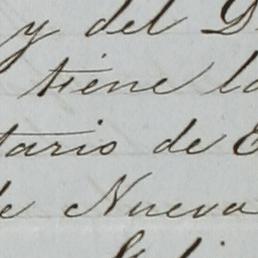 y del D
tiene la
tario de E
de Nueva